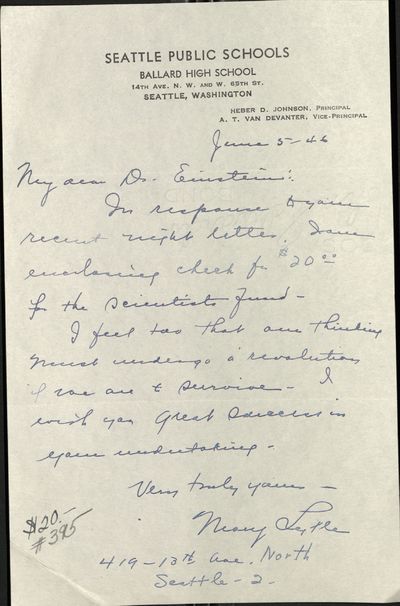 SEATTLE PUBLIC SCHOOLS
BALLARD HIGH SCHOOL
14TH AVE. N. W. AND W. 65TH ST.
SEATTLE, WASHINGTON
HEBER D. JOHNSON, PRINCIPAL
A. T. VAN DEVANTER, VICE-PRINCIPAL
June 5-46
My dear Dr. Einstein:
In response to your
recent night letter, I am
enclosing check for $20.00
for the Scientists fund-
I feel too that our thinking
must undergo a revolution
if we are to survive- I
wish you great success in
your undertaking-
Very truly yours-
Mary Lytle
419-13th Ave. North
Seattle-2.
$20.-
#395